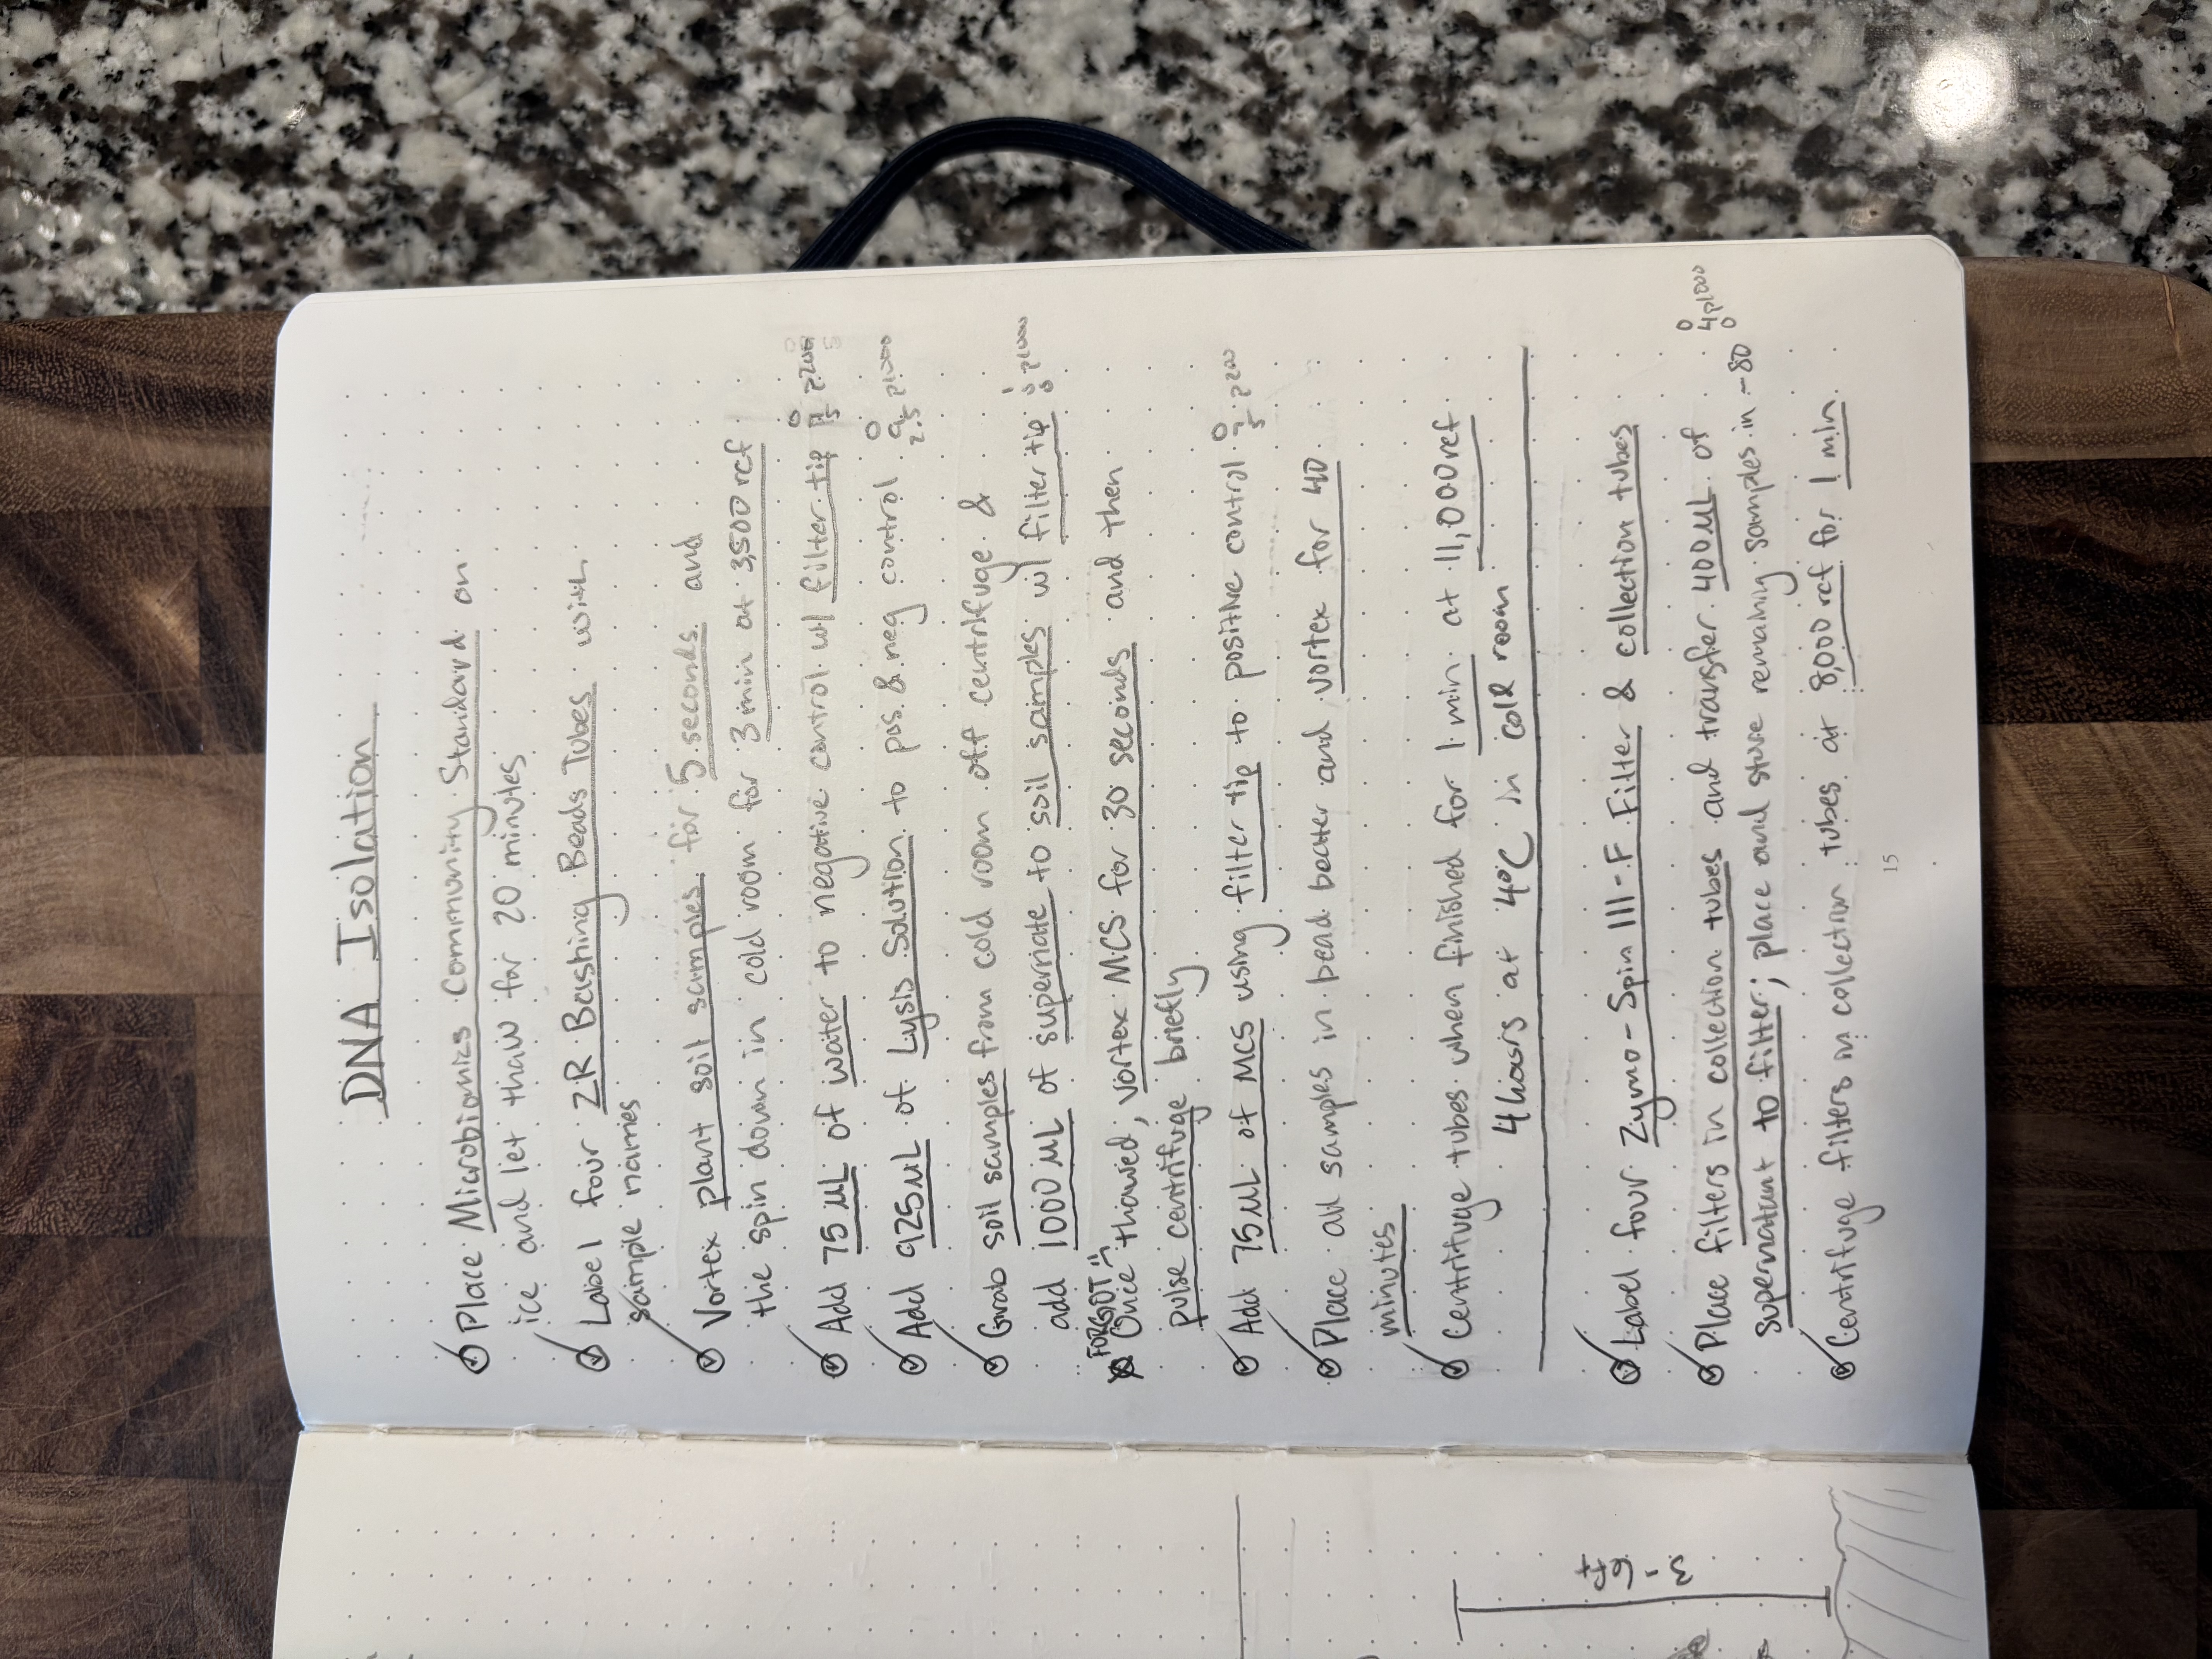 DNA Isolation
Place Microbiomics Community Standard on
ice and let thaw for 20 minutes
Label four ZR Bashing Beads Tubes with
sample names
Vortex plant soil samples for 5 seconds and
the spin down in cold room for 3 min at 3,500 rcf
Add 75 µL of water to negative control w/ filter tip 0 7 5 p200
Add 925 µL of Lysis Solution to pos & neg control 0 9 2.5 p1000
Grab soil samples from cold room off centrifuge &
add 1000 µL of supernate to soil samples w/ filter tip 1 0 0 p1000
FORGOT
Once thawed, vortex MCS for 30 seconds and then
pulse centrifuge briefly
Add 75 µL of MCS using filter tip to positive control 0 7 5 p200
Place all samples in bead beater and vortex for 40
minutes
Centrifuge tubes when finished for 1 min at 11,000 rcf
4 hours at 4°C in cold room
Label four Zymo-Spin III-F Filter & collection tubes
Place filters in collection tubes and transfer 400 µL of 0 4 0 p1000
supernatant to filter; place and store remaining samples in -80
Centrifuge filters in collection tubes at 8,000 rcf for 1 min
15
3-6ft